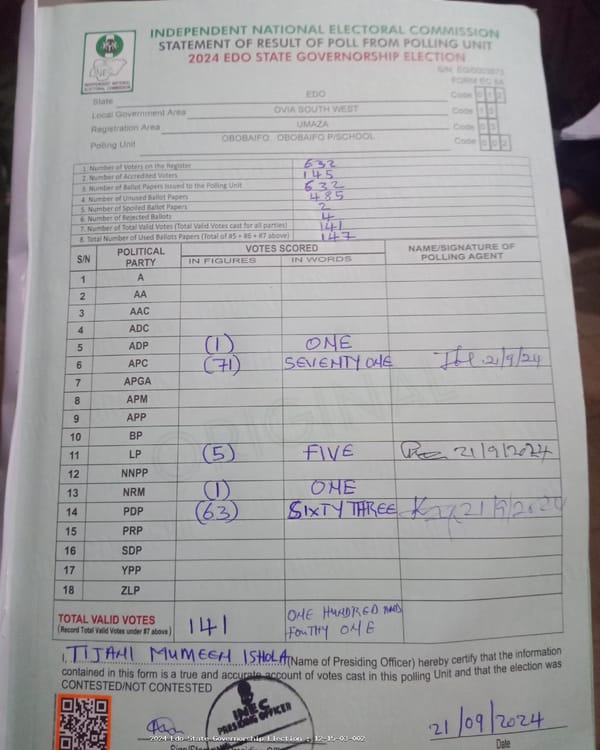 INDEPENDENT NATIONAL ELECTORAL COMMISSION
STATEMENT OF RESULT OF POLL FROM POLLING UNIT
2024 EDO STATE GOVERNORSHIP ELECTION
FORM EC 8A
State EDO Code 012
Local Government Area OVIA SOUTH WEST Code 15
Registration Area UMAZA Code 03
Polling Unit OBOBAIFO, OBOBAIFO P/SCHOOL Code 002
1. Number of Voters on the Register 632
2. Number of Accredited Voters 145
3. Number of Ballot Papers Issued to the Polling Unit 632
4. Number of Unused Ballot Papers 485
5. Number of Spoiled Ballot Papers 2
6. Number of Rejected Ballots 4
7. Number of Total Valid Votes (Total Valid Votes cast for all parties) 141
8. Total Number of Used Ballots Papers (Total of #5 + #6 + #7 above) 147
S/N POLITICAL PARTY VOTES SCORED NAME/SIGNATURE OF POLLING AGENT
IN FIGURES IN WORDS
1 A
2 AA
3 AAC
4 ADC
5 ADP (1) ONE
6 APC (71) SEVENTY ONE 21/9/24
7 APGA
8 APM
9 APP
10 BP
11 LP (5) FIVE 21/9/2024
12 NNPP
13 NRM (1) ONE
14 PDP (63) SIXTY THREE 21/9/2024
15 PRP
16 SDP
17 YPP
18 ZLP
ORIGINAL
TOTAL VALID VOTES 141 ONE HUNDRED AND
(Record Total Valid Votes under #7 above) FOUTHY ONE
I, TIJANI MUMEEN ISHOLA (Name of Presiding Officer) hereby certify that the information
contained in this form is a true and accurate account of votes cast in this polling Unit and that the election was
CONTESTED/NOT CONTESTED
INEC
PRESIDING OFFICER
21/09/2024
Date
2024 Edo State Governorship Election - 12-15-03-002